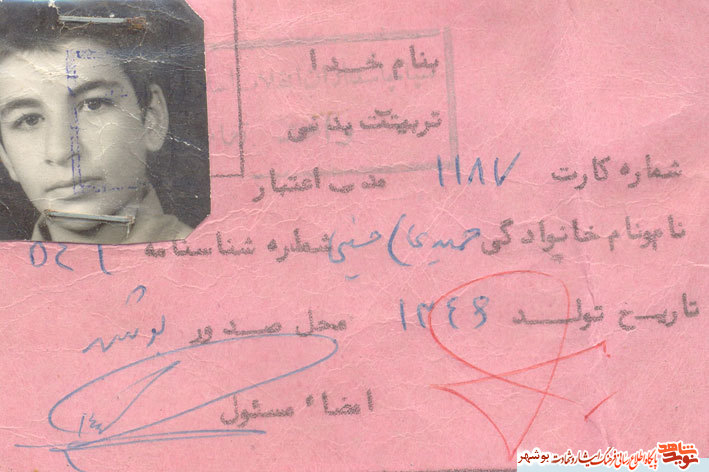 بنام خدا
تربیت بدنی
شماره کارت ۱۱۸۷ مدت اعتبار
نام ونام خانوادگی حسینی شماره شناسنامه ۵۴۱
تاریخ تولد ۱۳۴۶ محل صدور بوشهر
امضاء مسئول
نوید شاهد
پایگاه اطلاع رسانی فرهنگ ایثار و شهادت بوشهر